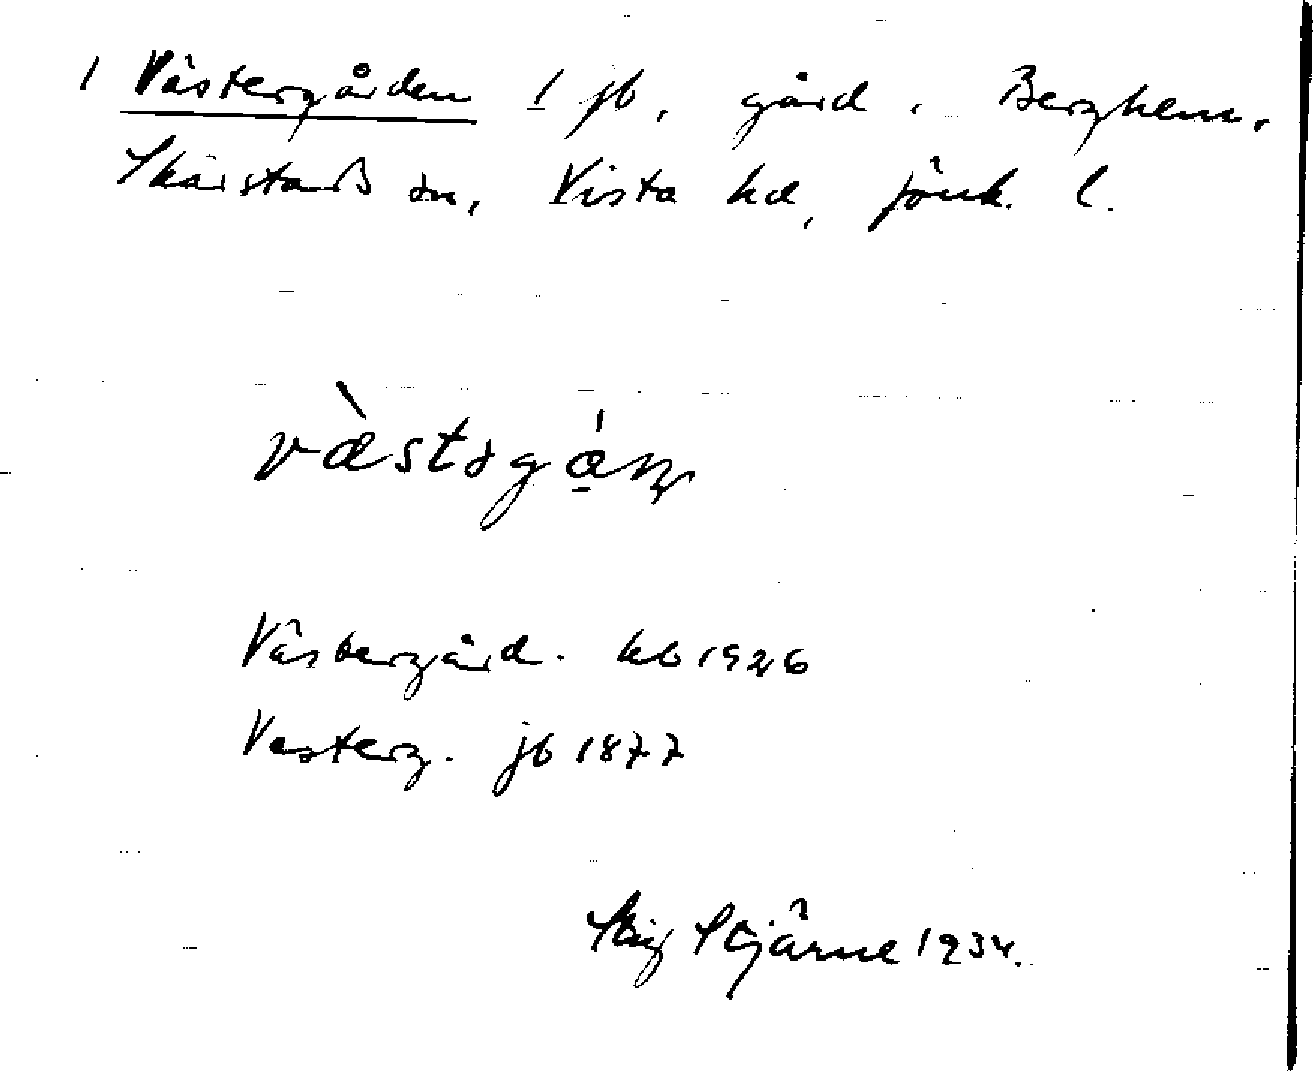 1 Västergården 1 jb, gård. Berghem,
Skärstads sn, Vista hd, Jönk. l.
væ̀stəgá̱ɳ
Västergård. kb 1926
Vesterg. jb 1877
Stig Stjärne 1934.